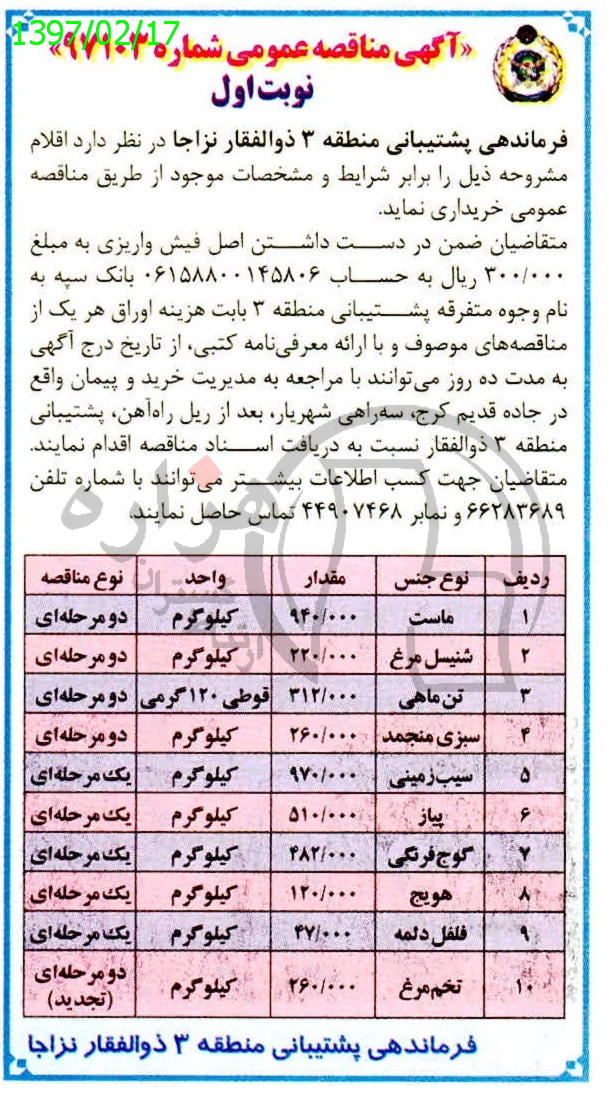 1397/02/17
«آگهی مناقصه عمومی شماره ۹۷۱۰۳»
نوبت اول
فرماندهی پشتیبانی منطقه ۳ ذوالفقار نزاجا در نظر دارد اقلام
مشروحه ذیل را برابر شرایط و مشخصات موجود از طریق مناقصه
عمومی خریداری نماید.
متقاضیان ضمن در دست داشتن اصل فیش واریزی به مبلغ
۳۰۰/۰۰۰ ریال به حساب ۰۶۱۵۸۸۰۰۱۴۵۸۰۶ بانک سپه به
نام وجوه متفرقه پشتیبانی منطقه ۳ بابت هزینه اوراق هر یک از
مناقصه‌های موصوف و با ارائه معرفی‌نامه کتبی، از تاریخ درج آگهی
به مدت ده روز می‌توانند با مراجعه به مدیریت خرید و پیمان واقع
در جاده قدیم کرج، سه‌راهی شهریار، بعد از ریل راه‌آهن، پشتیبانی
منطقه ۳ ذوالفقار نسبت به دریافت اسناد مناقصه اقدام نمایند.
متقاضیان جهت کسب اطلاعات بیشتر می‌توانند با شماره تلفن
۶۶۲۸۳۶۸۹ و نمابر ۴۴۹۰۷۴۶۸ تماس حاصل نمایند.
ردیف نوع جنس مقدار واحد نوع مناقصه
۱ ماست ۹۴۰/۰۰۰ کیلوگرم دو مرحله‌ای
۲ شنیسل مرغ ۲۲۰/۰۰۰ کیلوگرم دو مرحله‌ای
۳ تن ماهی ۳۱۲/۰۰۰ قوطی ۱۲۰ گرمی دو مرحله‌ای
۴ سبزی منجمد ۲۶۰/۰۰۰ کیلوگرم دو مرحله‌ای
۵ سیب‌زمینی ۹۷۰/۰۰۰ کیلوگرم یک مرحله‌ای
۶ پیاز ۵۱۰/۰۰۰ کیلوگرم یک مرحله‌ای
۷ گوج فرنگی ۴۸۲/۰۰۰ کیلوگرم یک مرحله‌ای
۸ هویج ۱۲۰/۰۰۰ کیلوگرم یک مرحله‌ای
۹ فلفل دلمه ۴۷/۰۰۰ کیلوگرم یک مرحله‌ای
۱۰ تخم‌مرغ ۲۶۰/۰۰۰ کیلوگرم دو مرحله‌ای
(تجدید)
فرماندهی پشتیبانی منطقه ۳ ذوالفقار نزاجا
هزاره